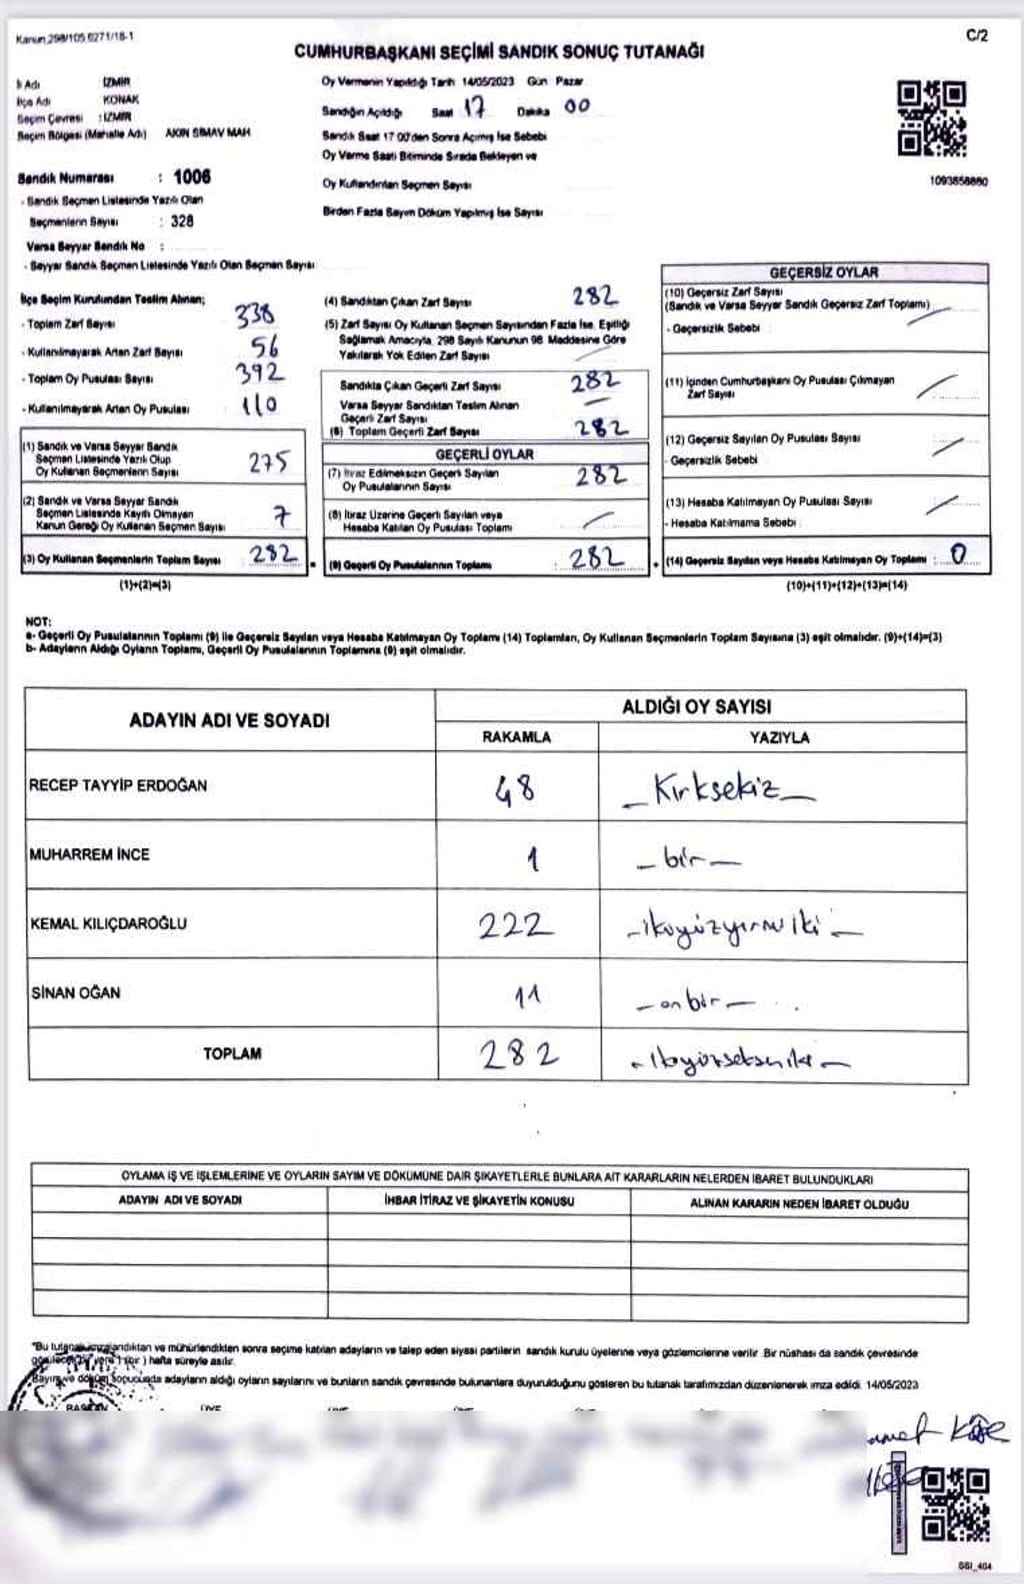 Kanun 298/105 6271/18-1
C/2
CUMHURBAŞKANI SEÇİMİ SANDIK SONUÇ TUTANAĞI
İl Adı : İZMİR
İlçe Adı : KONAK
Seçim Çevresi : İZMİR
Seçim Bölgesi (Mahalle Adı) AKIN SİMAV MAH
Sandık Numarası : 1006
- Sandık Seçmen Listesinde Yazılı Olan
Seçmenlerin Sayısı : 328
Varsa Seyyar Sandık No :
- Seyyar Sandık Seçmen Listesinde Yazılı Olan Seçmen Sayısı
Oy Vermenin Yapıldığı Tarih 14/05/2023 Gün Pazar
Sandığın Açıldığı Saat 17 Dakika 00
Sandık Saat 17 00'den Sonra Açılmış İse Sebebi
Oy Verme Saati Bitiminde Sırada Bekleyen ve
Oy Kullandırılan Seçmen Sayısı
Birden Fazla Sayım Döküm Yapılmış İse Sayısı
1093858860
İlçe Seçim Kurulundan Teslim Alınan;
- Toplam Zarf Sayısı 338
- Kullanılmayarak Artan Zarf Sayısı 56
- Toplam Oy Pusulası Sayısı 392
- Kullanılmayarak Artan Oy Pusulası 110
(1) Sandık ve Varsa Seyyar Sandık
Seçmen Listesinde Yazılı Olup
Oy Kullanan Seçmenlerin Sayısı 275
(2) Sandık ve Varsa Seyyar Sandık
Seçmen Listesinde Kayıtlı Olmayan
Kanun Gereği Oy Kullanan Seçmen Sayısı 7
(3) Oy Kullanan Seçmenlerin Toplam Sayısı 282
(1)+(2)=(3)
(4) Sandıktan Çıkan Zarf Sayısı 282
(5) Zarf Sayısı Oy Kullanan Seçmen Sayısından Fazla İse, Eşitliği
Sağlamak Amacıyla, 298 Sayılı Kanunun 98. Maddesine Göre
Yakılarak Yok Edilen Zarf Sayısı
Sandıkta Çıkan Geçerli Zarf Sayısı 282
Varsa Seyyar Sandıktan Teslim Alınan
Geçerli Zarf Sayısı
(6) Toplam Geçerli Zarf Sayısı 282
GEÇERLİ OYLAR
(7) İtiraz Edilmeksizin Geçerli Sayılan
Oy Pusulalarının Sayısı 282
(8) İtiraz Üzerine Geçerli Sayılan veya
Hesaba Katılan Oy Pusulası Toplamı
(9) Geçerli Oy Pusulalarının Toplamı 282
GEÇERSİZ OYLAR
(10) Geçersiz Zarf Sayısı
(Sandık ve Varsa Seyyar Sandık Geçersiz Zarf Toplamı)
- Geçersizlik Sebebi
(11) İçinden Cumhurbaşkanı Oy Pusulası Çıkmayan
Zarf Sayısı
(12) Geçersiz Sayılan Oy Pusulası Sayısı
- Geçersizlik Sebebi
(13) Hesaba Katılmayan Oy Pusulası Sayısı
- Hesaba Katılmama Sebebi
(14) Geçersiz Sayılan veya Hesaba Katılmayan Oy Toplamı : 0
(10)+(11)+(12)+(13)=(14)
NOT:
a- Geçerli Oy Pusulalarının Toplamı (9) ile Geçersiz Sayılan veya Hesaba Katılmayan Oy Toplamı (14) Toplamları, Oy Kullanan Seçmenlerin Toplam Sayısına (3) eşit olmalıdır. (9)+(14)=(3)
b- Adayların Aldığı Oyların Toplamı, Geçerli Oy Pusulalarının Toplamına (9) eşit olmalıdır.
ADAYIN ADI VE SOYADI
ALDIĞI OY SAYISI
RAKAMLA YAZIYLA
RECEP TAYYİP ERDOĞAN 48 Kırksekiz
MUHARREM İNCE 1 bir
KEMAL KILIÇDAROĞLU 222 ikiyüzyirmi iki
SİNAN OĞAN 11 on bir
TOPLAM 282 ikiyüzseksen iki
OYLAMA İŞ VE İŞLEMLERİNE VE OYLARIN SAYIM VE DÖKÜMÜNE DAİR ŞİKAYETLERLE BUNLARA AİT KARARLARIN NELERDEN İBARET BULUNDUKLARI
ADAYIN ADI VE SOYADI İHBAR İTİRAZ VE ŞİKAYETİN KONUSU ALINAN KARARIN NEDEN İBARET OLDUĞU
*Bu tutanak imzalandıktan ve mühürlendikten sonra seçime katılan adayların ve talep eden siyasi partilerin sandık kurulu üyelerine veya gözlemcilerine verilir. Bir nüshası da sandık çevresinde
görülecek bir yere 1 (bir) hafta süreyle asılır.
Sayım ve döküm sonucunda adayların aldığı oyların sayılarını ve bunların sandık çevresinde bulunanlara duyurulduğunu gösteren bu tutanak tarafımızdan düzenlenerek imza edildi. 14/05/2023
BAŞKAN
SSI_404